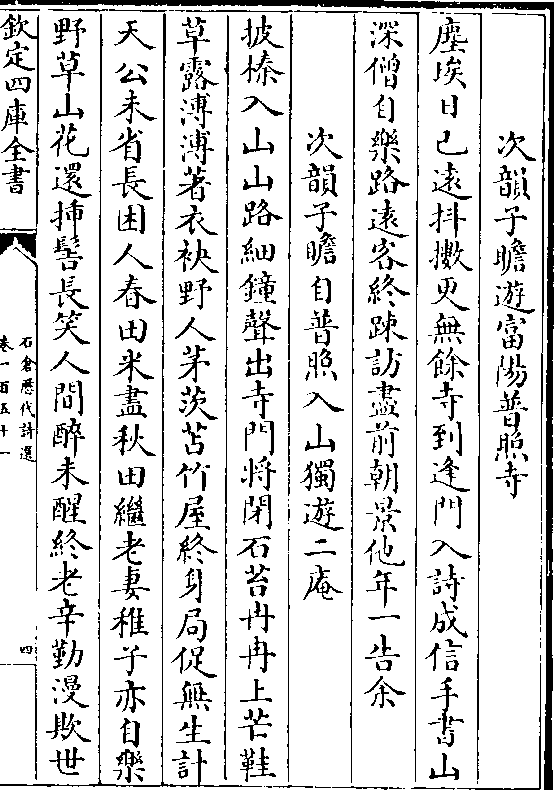 次韻子瞻遊富陽普照寺
塵埃日已遠抖擻更無餘寺到逢門入詩成信手書山
深僧自樂路遠客終疎訪盡前朝景他年一告余
次韻子瞻自普照入山獨遊二庵
披榛入山山路細鐘聲出寺門將閉石苔冉冉上芒鞋
草露漙漙著衣袂野人茅茨苫竹屋終身局促無生計
天公未省長困人春田米盡秋田繼老妻稚子亦自樂
野草山花還揷髻長笑人間醉未醒終老辛勤漫欺世
欽定四庫全書
石倉歷代詩選
卷一百五十一
四